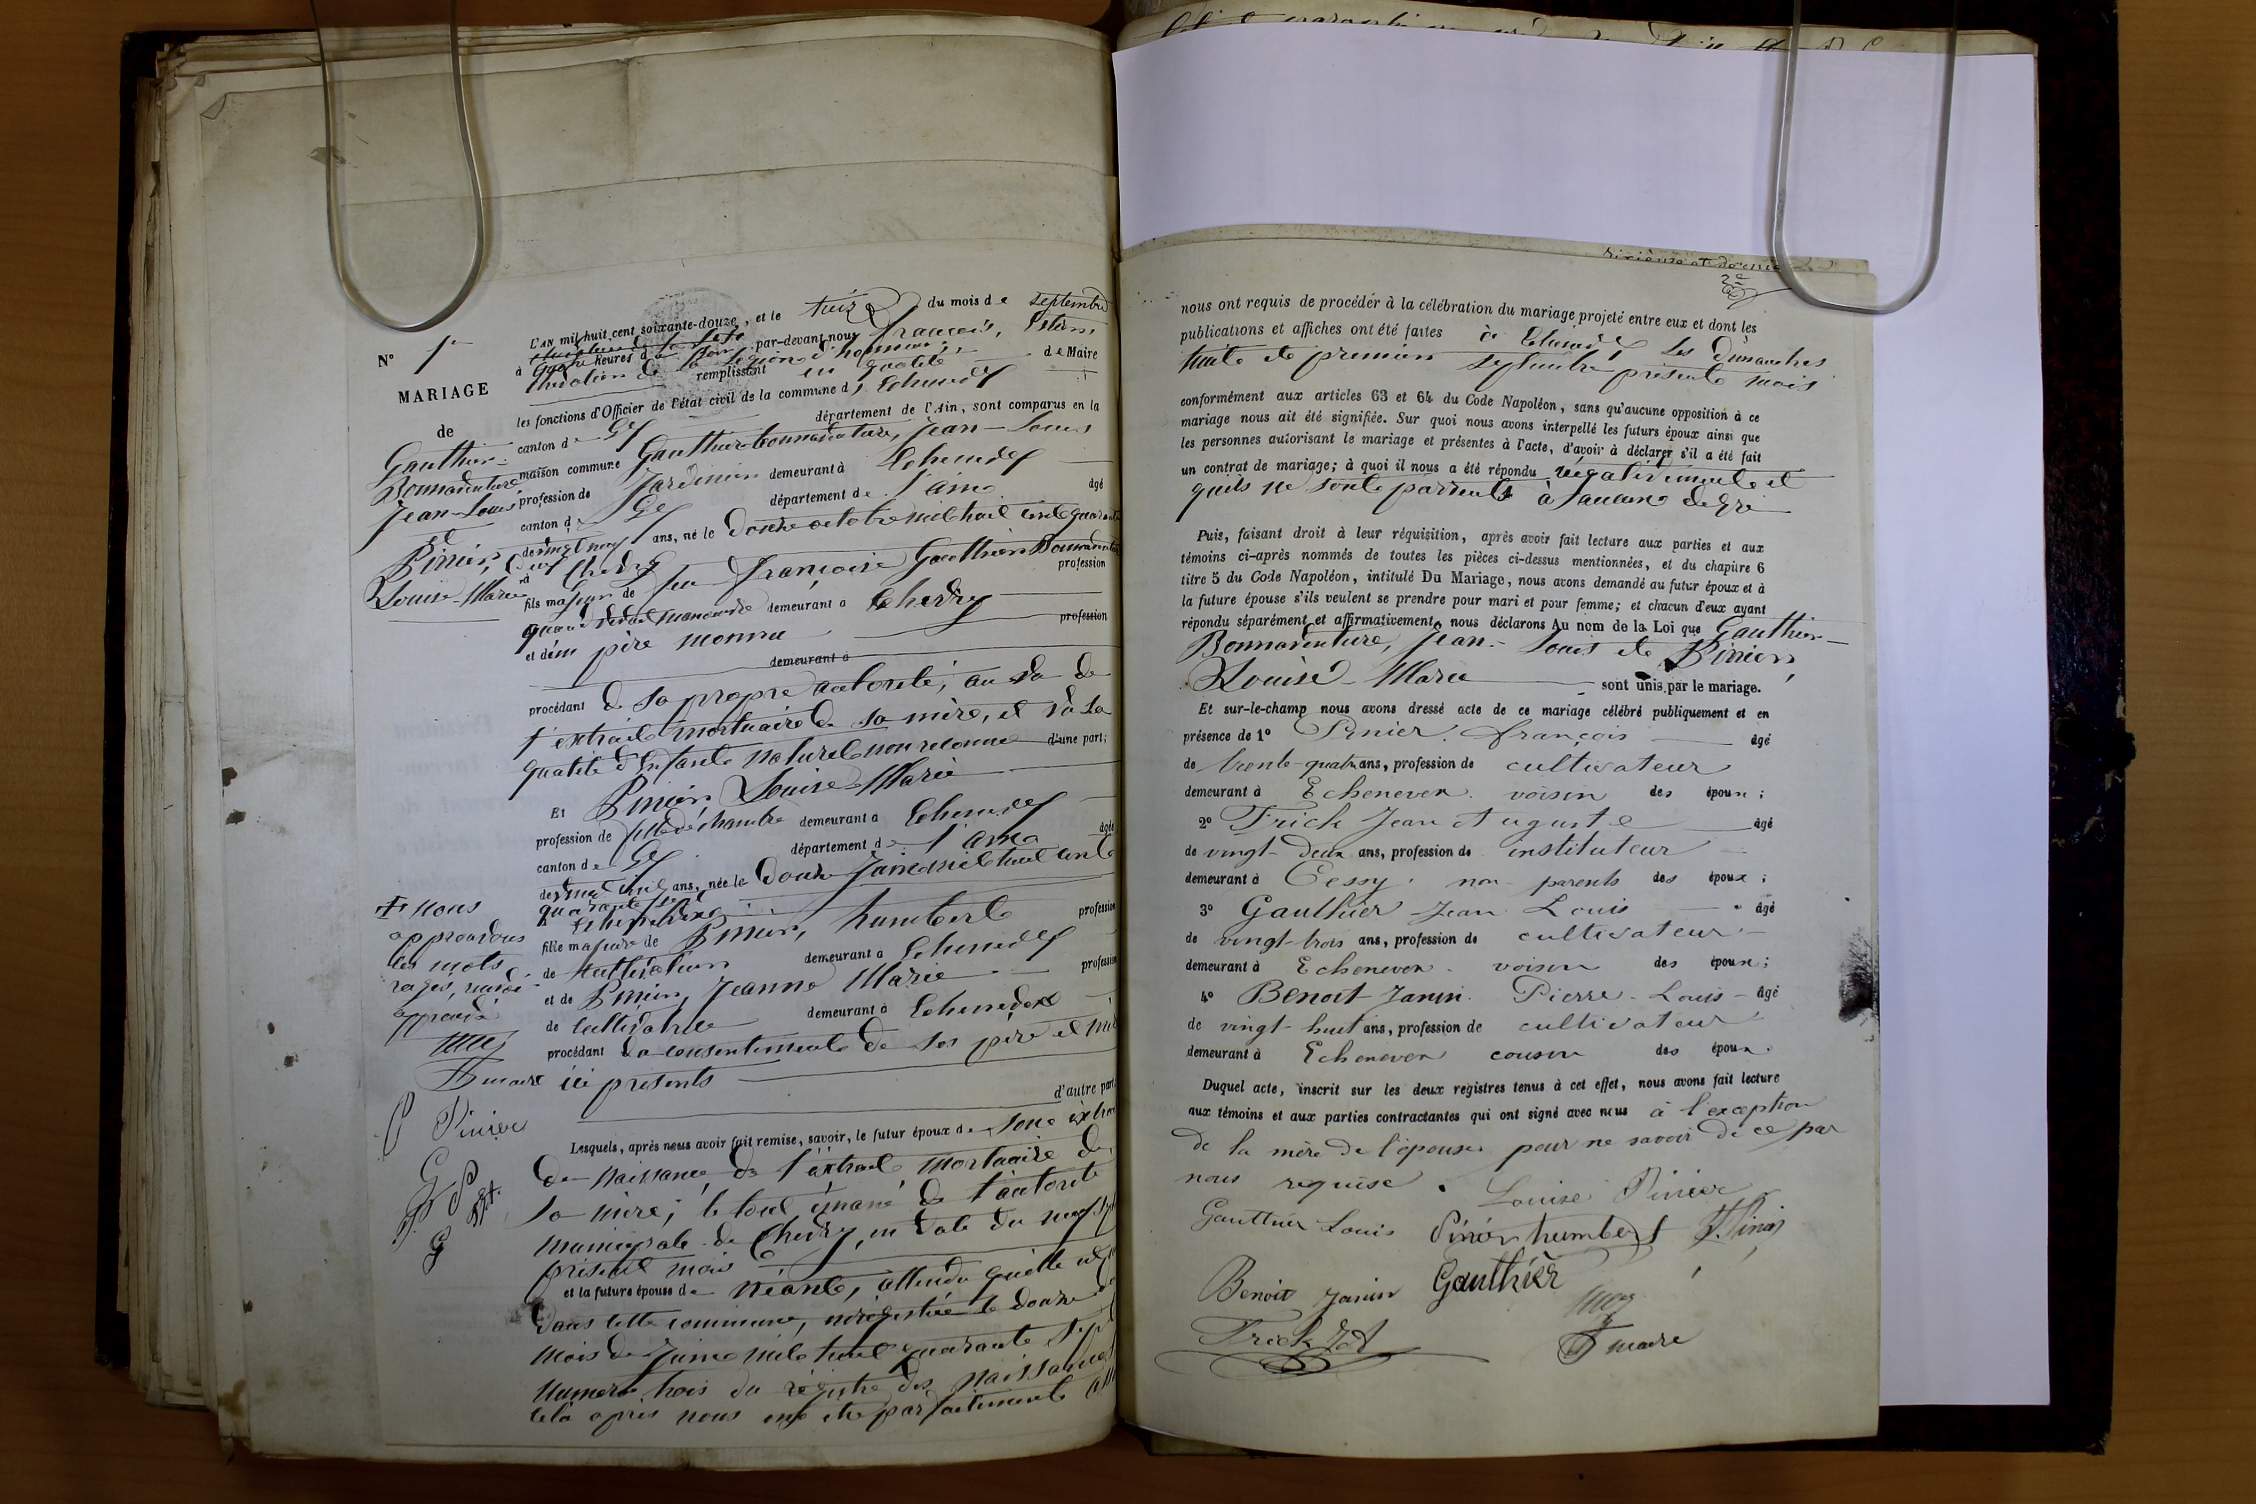 N° 1er
MARIAGE
de
Gauthier-
Bonnaventure
Jean-Louis
et
Pinier,
Louise-Marie
L'AN mil huit cent soixante-douze, et le treize du mois de septembre
à quatre heures du soir, par-devant nous François,
de la légion d'honneur
remplissant en qualité de Maire
les fonctions d'Officier de l'état civil de la commune d'Echenevex
canton de Gex département de l'Ain, sont comparus en la
maison commune Gauthier-Bonnaventure, Jean-Louis
profession de Jardinier demeurant à Echenevex
canton de Gex département de l'ain âgé
de vingt neuf ans, né le douze octobre mil huit cent quarante
deux à Chevry
fils majeur de feu Françoise Gauthier Bonnaventure profession
quand vivait manœuvre demeurant à Chevry
et d'un père inconnu profession
demeurant à
procédant de sa propre autorité, au vu de
l'extrait mortuaire de sa mère, et vu sa
qualité d'enfant naturel non reconnu d'une part;
Et Pinier, Louise-Marie
profession de fille de chambre demeurant à Echenevex
canton de Gex département de l'ain âgée
de vingt cinq ans, née le douze Juin mil huit cent
quarante sept
à Echenevex
fille majeure de Pinier, humbert profession
de cultivateur demeurant à Echenevex
et de Pinier, Jeanne Marie profession
de cultivatrice demeurant à Echenevex
procédant du consentement de ses père et mère
ici présents
d'autre part.
Lesquels, après nous avoir fait remise, savoir, le futur époux de son extrait
de naissance, de l'extrait mortuaire de
sa mère; le tout émané de l'autorité
municipale de Chevry, en date du neuf
présent mois
et la future épouse de néant, attendu qu'elle est née
dans cette commune, enregistrée le douze du
mois de Juin mil huit quarante sept
numéro trois du registre des naissances
cela après nous
‡ nous
approuvons
les mots
rayés,
approuvé
maire
Pinier
G
nous ont requis de procéder à la célébration du mariage projeté entre eux et dont les
publications et affiches ont été faites à Echenevex les dimanches
huit et premier septembre présent mois
conformément aux articles 63 et 64 du Code Napoléon, sans qu'aucune opposition à ce
mariage nous ait été signifiée. Sur quoi nous avons interpellé les futurs époux ainsi que
les personnes autorisant le mariage et présentes à l'acte, d'avoir à déclarer s'il a été fait
un contrat de mariage; à quoi il nous a été répondu négativement et
qu'ils ne sont parents à aucun degré
Puis, faisant droit à leur réquisition, après avoir fait lecture aux parties et aux
témoins ci-après nommés de toutes les pièces ci-dessus mentionnées, et du chapitre 6
titre 5 du Code Napoléon, intitulé Du Mariage, nous avons demandé au futur époux et à
la future épouse s'ils veulent se prendre pour mari et pour femme; et chacun d'eux ayant
répondu séparément et affirmativement, nous déclarons Au nom de la Loi que Gauthier-
Bonnaventure, Jean-Louis et Pinier,
Louise-Marie sont unis par le mariage.
Et sur-le-champ nous avons dressé acte de ce mariage célébré publiquement et en
présence de 1° Pinier François âgé
de trente-quatre ans, profession de cultivateur
demeurant à Echenevex voisin des époux;
2° Frick Jean Auguste âgé
de vingt-deux ans, profession de instituteur
demeurant à Cessy non parents des époux;
3° Gauthier Jean Louis âgé
de vingt-trois ans, profession de cultivateur
demeurant à Echenevex voisin des époux;
4° Benoit Janin Pierre-Louis âgé
de vingt-huit ans, profession de cultivateur
demeurant à Echenevex cousin des époux.
Duquel acte, inscrit sur les deux registres tenus à cet effet, nous avons fait lecture
aux témoins et aux parties contractantes qui ont signé avec nous à l'exception
de la mère de l'épouse pour ne savoir de ce par
nous requise.
Louise Pinier
Gauthier Louis Pinier humbert F. Pinier
Benoit Janin Gauthier
Frick JA
maire